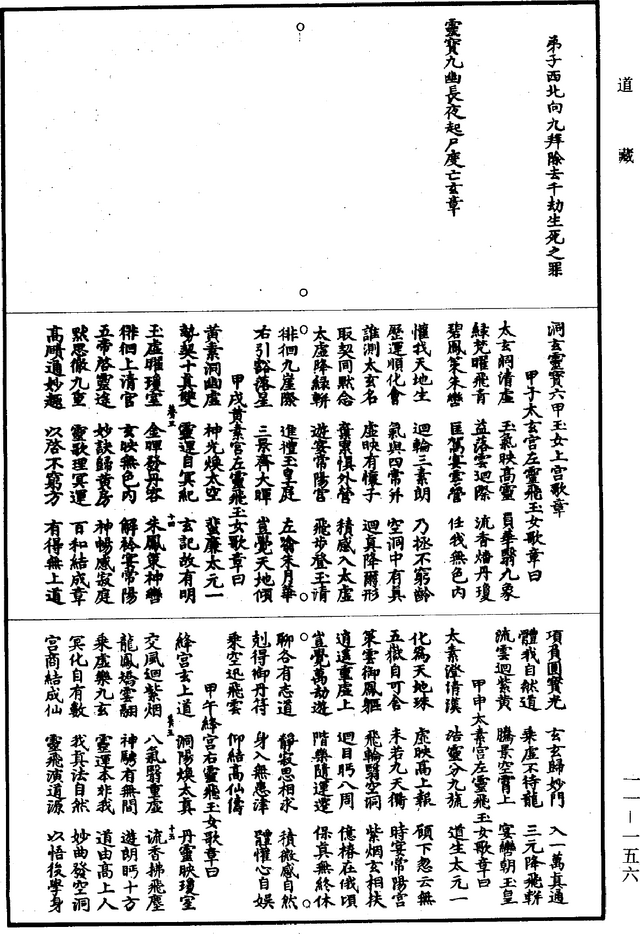 道藏
弟子西北向九拜除去千劫生死之罪
靈寶九幽長夜起尸度亡玄章
洞玄靈寶六甲玉女上宮歌章
甲子太玄宮左靈飛玉女歌章曰
太玄洞清虛 玉氣映高靈 員華翳九象
綠梵曜飛青 益落雲迴際 流香燔丹瓊
碧鳳策朱轡 匡駕宴雲營 任我無色內
權我天地生 迴輪三素朗 乃極不窮齡
歷運順化會 氣與四常升 空洞中有真
誰測太玄名 虛映有懷子 迴真降爾形
取契同默念 棄累損外營 積感入太虛
太虛降綠軿 遊宴常陽宮 飛步登玉清
徘徊九崖際 進禮玉皇庭 左揄朱月華
右引豁落星 三景齊大暉 豈覺天地傾
甲戌黃素宮左靈飛玉女歌章曰
黃素洞幽虛 神光煥太空 斐廉太元一
勢契十真雙 靈運自冥紀 玄記故有明
卷三 十四
玉虛曜瓊室 金暉發丹容 朱鳳策神轡
徘徊上清宮 玄映無色內 解衿宴常陽
五帝啓靈途 妙訣歸黃房 神暢感寂庭
默思徹九重 靈歌理冥運 百和結成章
高順通妙趣 以啓不窮方 有得無上道
項負圓寶光 玄玄歸妙門 入一萬真通
體我自然道 乘虛不待龍 三元降飛軿
流雲迴紫黃 騰景空霄上 宴轡朝玉皇
甲申太素宮左靈飛玉女歌章曰
太素澄清漢 浩靈分九旒 道生太元一
化為天地珠 虛映高上報 顧下忽云無
五嶽自可舍 未若九天儔 時宴常陽宮
策雲御鳳軀 飛輪翳空洞 紫烟玄相扶
逍遙重虛上 迴目眄八周 億椿在俄頃
豈覺萬劫遊 階樂隨運遼 保真無終休
聊各有志道 靜寂思相求 積微感自然
剋得御丹符 身入無恚津 體懽心自娛
乘空迅飛雲 仰結高仙儔
甲午絳宮右靈飛玉女歌章曰
絳宮玄上道 洞陽煥太真 丹靈映瓊室
卷三 十五
交風迴紫烟 八氣翳重虛 流香拂飛塵
龍鳳矯雲翮 神騁有無間 遊朗眄十方
乘虛樂九玄 靈運本非我 道由高上人
冥化自有數 我真法自然 妙曲發空洞
宮商結成仙 靈飛演道源 以悟後學身
一一—一五六